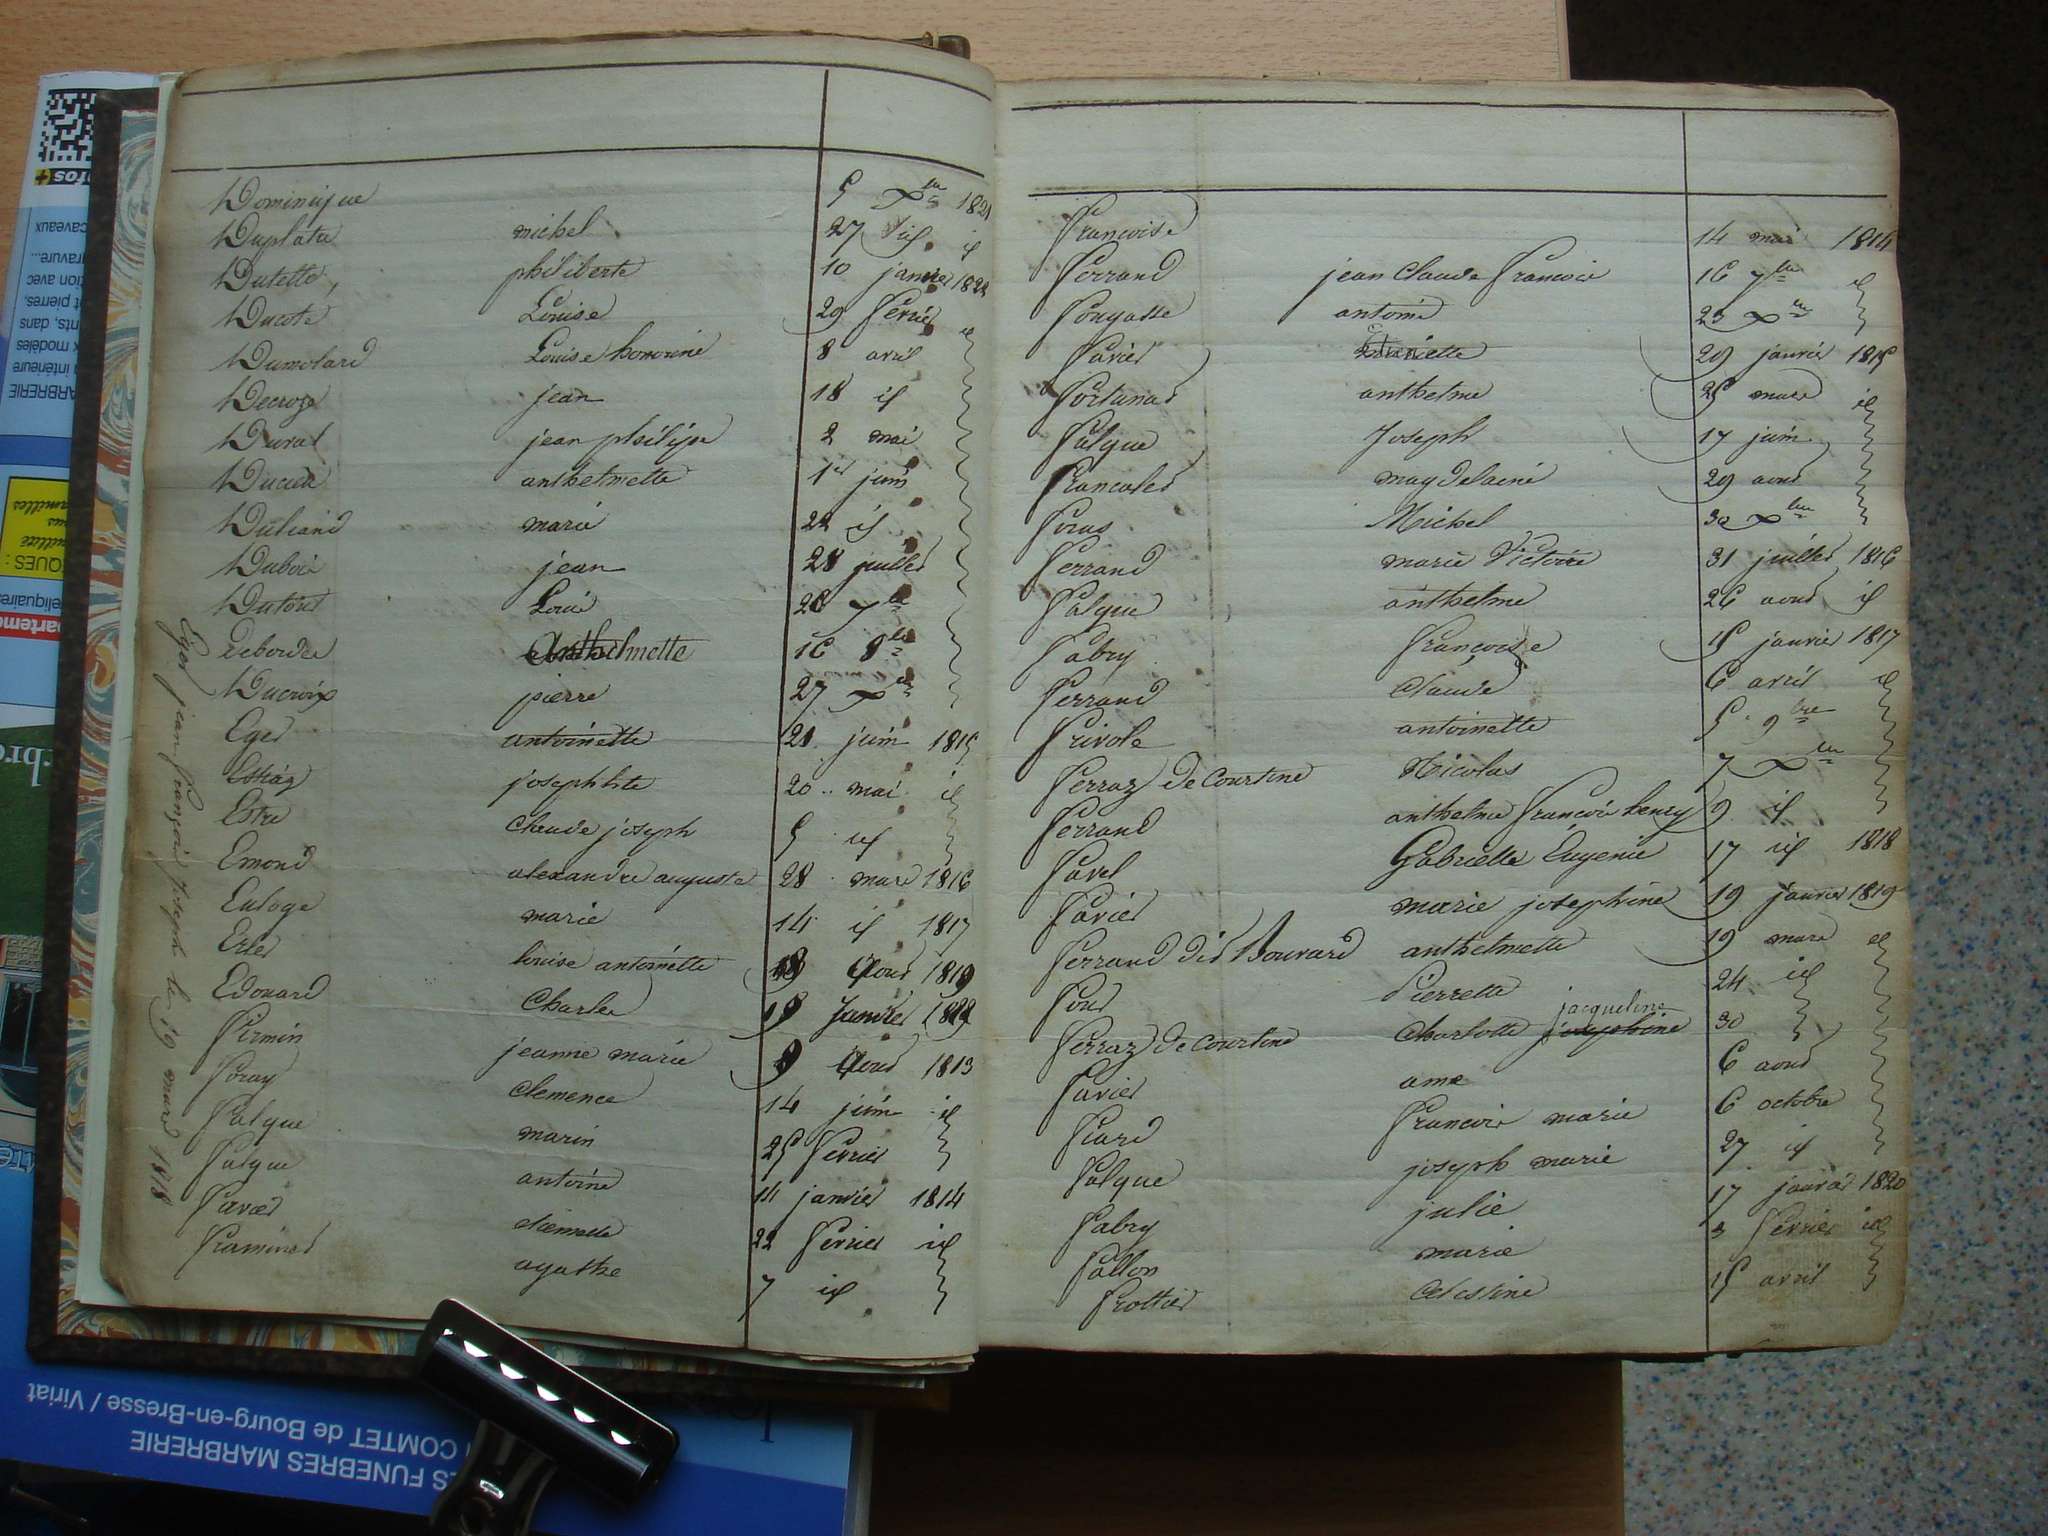 Dominique 5 Xbre 1821
Duplatre michel 27 id id
Dutette, philiberte 10 janvier 1822
Ducote Louise 29 Fevrier id
Dumolard Louise honorine 8 avril
Decroze jean 18 id
Durat jean philipe 2 mai
anthelmette 1er juin
Duliand marie 22 id
Dubois jean 28 juillet
Dutour Louis 28 7bre
Deborde Anthelmette 16 8bre
Ducroix pierre 27 Xbre
Eger antoinette 21 juin 1815
josephte 20 mai id
Estre Claude joseph 5 id
Emond alexandre auguste 28 mars 1816
Euloge marie 14 id 1817
louise antoinette Aout 1819
Edouard Charles Janvier
Firmin jeanne marie 9 Aout 1813
Foray clemence 14 juin id
Falque marin 25 Fevrier
Falque antoine 14 janvier 1814
Favier etiennette 22 Fevrier id
Framinet agathe 7 id
Eger jean françois joseph le 19 mars 1818
Francoise 14 mai 1814
Ferrand jean Claude Francois 16 7bre id
Fougasse antoine 23 Xbre
Favier 29 janvier 1815
Fortunat anthelme 25 mars id
Falque Joseph 17 juin
Francalet magdelaine 29 aout
Foras Michel 30 Xbre
Ferrand marie Victoire 31 juillet 1816
Falque anthelme 26 aout id
Fabry Francoise 15 janvier 1817
Ferrand Claude 6 avril id
Frivole antoinette 5 9bre
Ferraz de Courtine Nicolas 7 Xbre
Ferrand anthelme Francois henry 9 id
Favel Gabrielle Eugenie 17 id 1818
Favier marie josephine 19 janvier 1819
Ferrand dit Bouvard anthelmette 19 mars id
Four Pierrette 24 id
jacqueline
Ferraz de Courtine Charlotte josephine 30
Favier ame 6 aout
Fiard Francois marie 6 octobre
Falque joseph marie 27 id
Fabry julie 17 janvier 1820
Fallon marie 3 Fevrier id
Frottier Celestine 15 avril
caveaux
gravure...
tion avec
t pierres,
nts, dans
x modèles
intérieure
ARBRERIE
QUES :
eliquaires
partement
ES FUNEBRES MARBRERIE
COMTET de Bourg-en-Bresse / Viriat